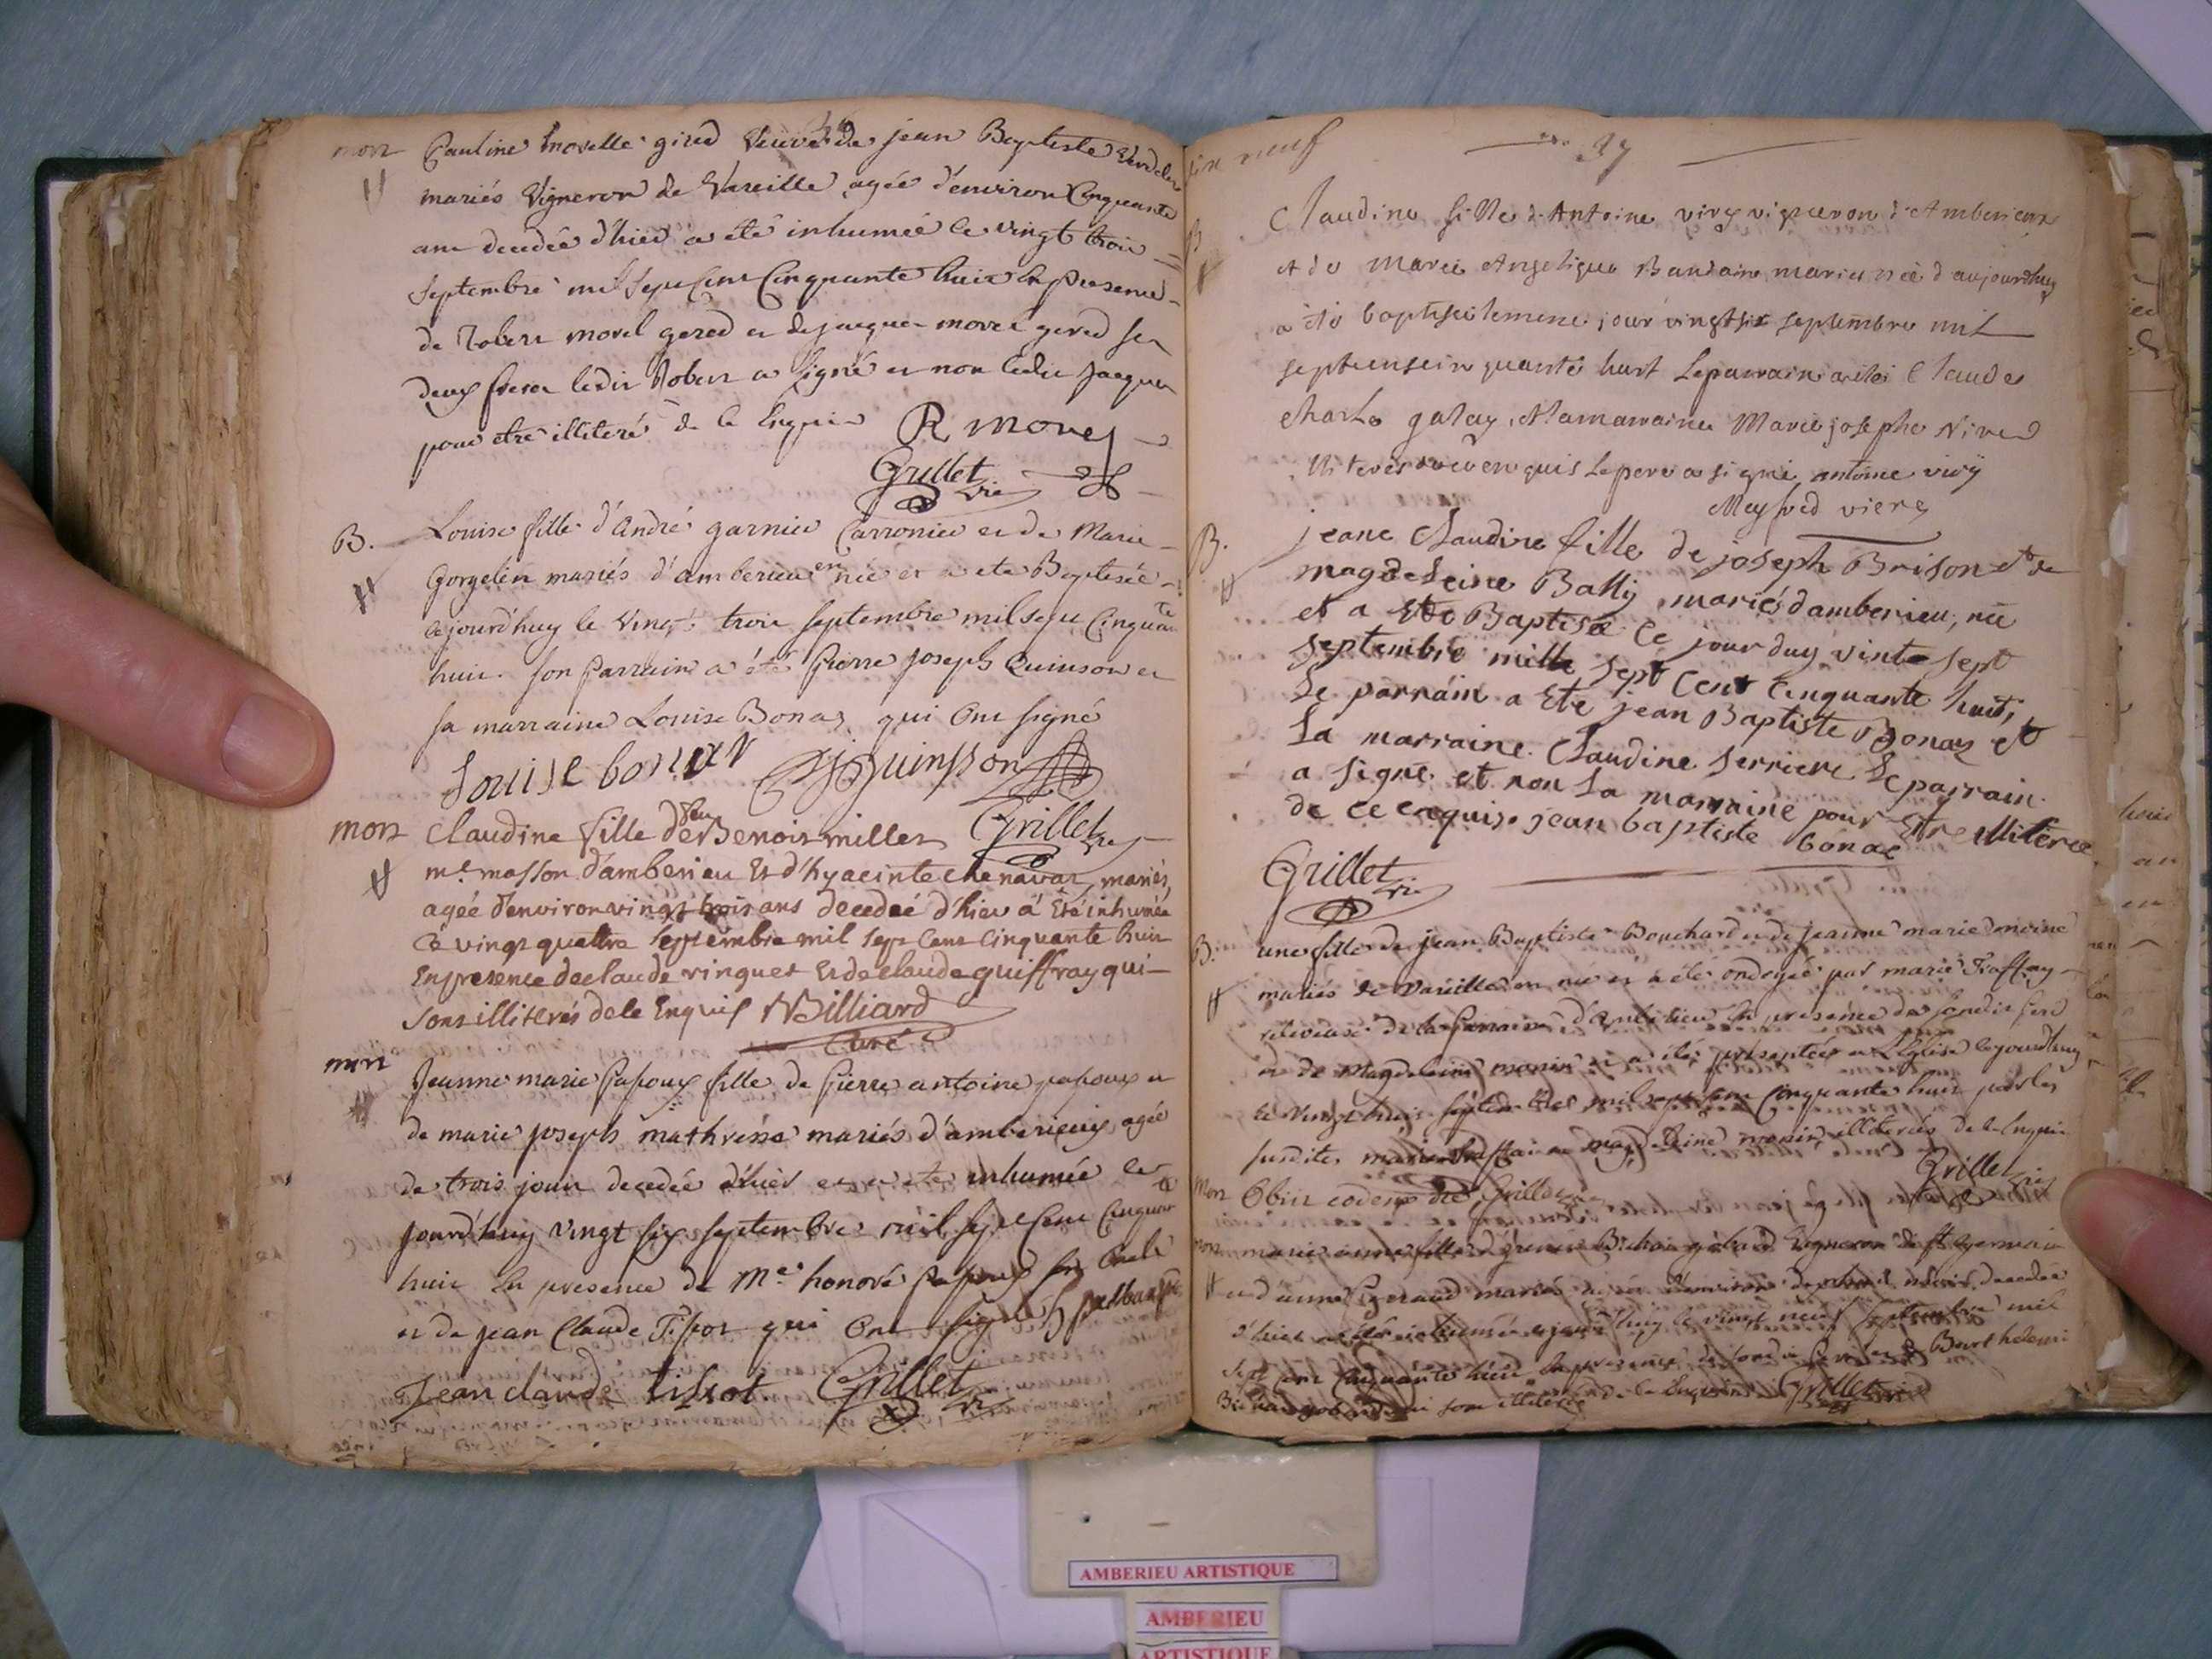 mort Pauline morelle gired veuve de jean Baptiste
mariés Vigneron de Vareille agée d'environ Cinquante
ans decedée d'hier a été inhumée le vingt trois
septembre mil sept Cent Cinquante huit En presence
de Robert morel gered et de jacques morel gered ses
deux freres ledit Robert a signé et non ledit jacques
pour etre illiteré de ce Enquis R morel
Grillet vic
B. Louise fille d'André garnier Carronier et de Marie
Gorgelin mariés d'amberieu en née et a ete Baptisée
cejourd'huy le Vingt trois septembre mil sept Cinquante
huit. son parrain a été Pierre joseph Quinson et
sa marraine Louise Bonaz qui Ont signé
Louise bonax Quinsson
Grillet vic
mort Claudine fille de feu Benoit millet
me masson d'amberieu Et d'hyacinte chenavaz mariés
agée d'environ vingt trois ans decedée d'hier a Eté inhumée
Ce vingt quattre septembre mil sept Cent Cinquante huit
En presence de claude vinguet Et de claude guiffray qui
sont illiterés de le Enquis Billiard
Curé
mort Jeanne marie Papoux fille de Pierre antoine papoux et
de marie joseph mathresse mariés d'amberieux agée
de trois jours decedée d'hier et a eté inhumée ce
jourd'huy vingt six septembre mil sept Cent Cinquante
huit En presence de Me honoré Papoux son Oncle
et de jean Claude Tissot qui Ont signé
Jean claude tissot Grillet vic
neuf 37
B Claudine fille d'Antoine viry vigneron d'Amberieux
et de Marie Angelique Baudain mariés née d'aujourdhuy
a été baptisée lemême jour vingt six septembre mil
septcenscinquante huit Leparrain aetéi Claude
charle galay et lamarraine Marie josephe Nived
illiteres de ce enquis Lepere a signé antoine viry
Meyfred vicre
B. jeane Claudine fille de joseph Brison et de
magdeleine Bally mariés damberieu, née
et a Eté Baptisé Ce jourduy vinte sept
septembre mille sept Cent Cinquante huit,
Le parrain a Ete jean Baptiste Bonaz et
La marraine Claudine serriere Le parrain
a signé et non La marraine pour Etre illiterée
de ce enquise jean baptiste bonaz
Grillet vic
B. une fille de jean Baptiste Bouchard et de jeanne marie moine
mariés de Vareille en née et a été ondoyée par marie Traffay
releveuse de la Paroisse d'Ambérieu En presence de
et de Magdeleine monin et a été presentée a L'Eglise cejourdhuy
le vingt huit septembre mil sept Cent Cinquante huit par les
susdites marie Traffai et magdeleine monin illiterées de ce Enquis
Grillet vic
mort Obiit eodem die Grillet
mort marie anne fille de Bichat gobard Vigneron de st germain
et d'anne Geraud mariés agée d'environ mois decedée
d'hier a été inhumée cejourd'huy le vingt neuf septembre mil
sept Cent Cinquante huit En presence de son Pere et de Barthelemi
Bichat gobard qui sont illiterés de ce Enquis Grillet vic
AMBERIEU ARTISTIQUE
AMBERIEU
ARTISTIQUE